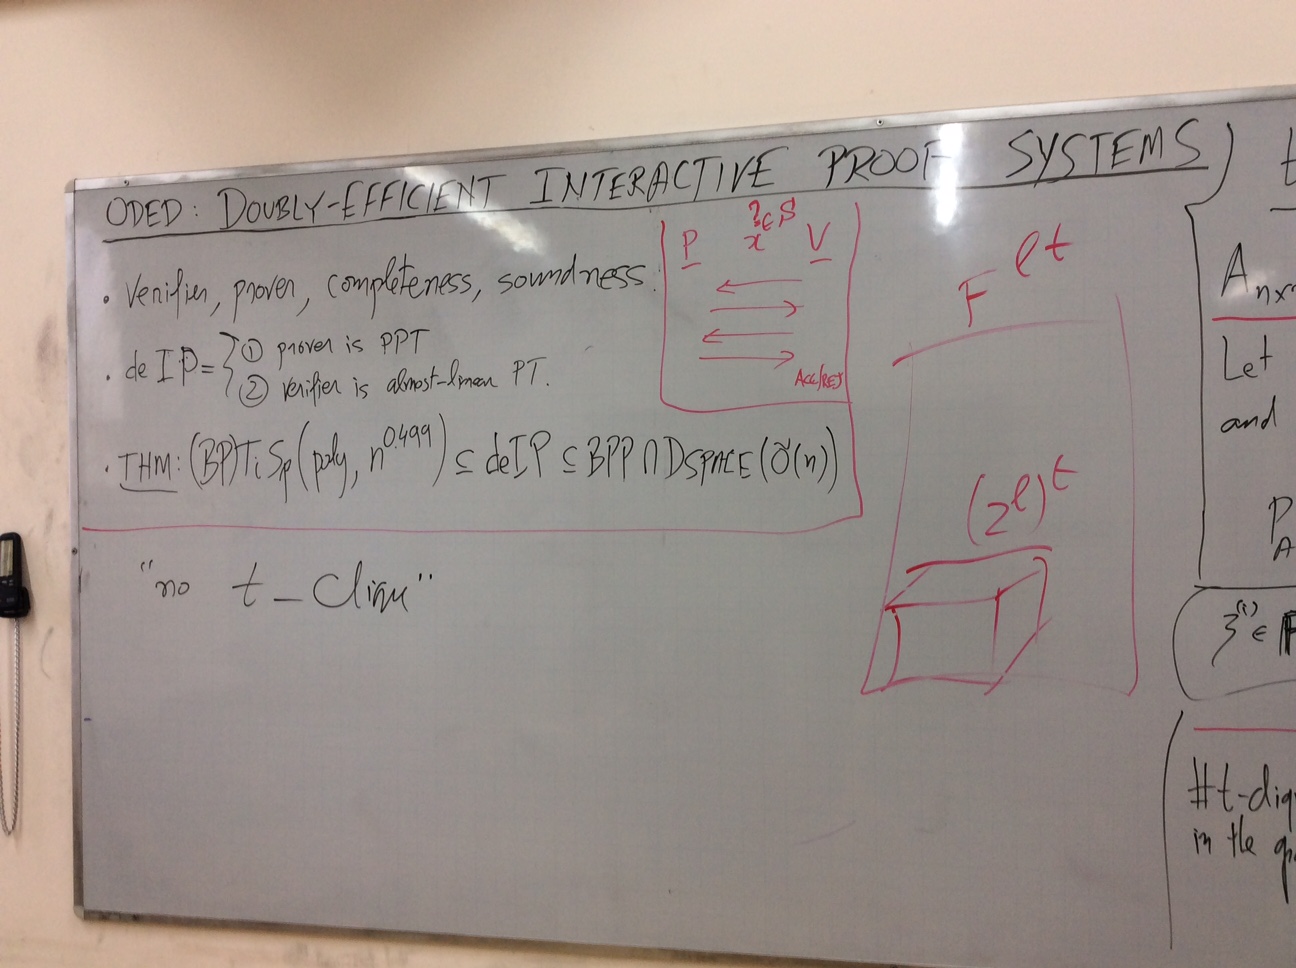 ODED: DOUBLY-EFFICIENT INTERACTIVE PROOF SYSTEMS
• Verifier, prover, completeness, soundness.
• deIP = { ① prover is PPT
② verifier is almost-linear PT.
• THM: (BP)TiSp(poly, n^0.499) ⊆ deIP ⊆ BPP ∩ DSPACE(Õ(n))
P x ?∈ S V
ACC/REJ
"no t-Clique"
F^ℓt
(2^ℓ)^t
t
A_n×
Let
and
P_A
ξ^(i) ∈ F
#t-cliq
in the